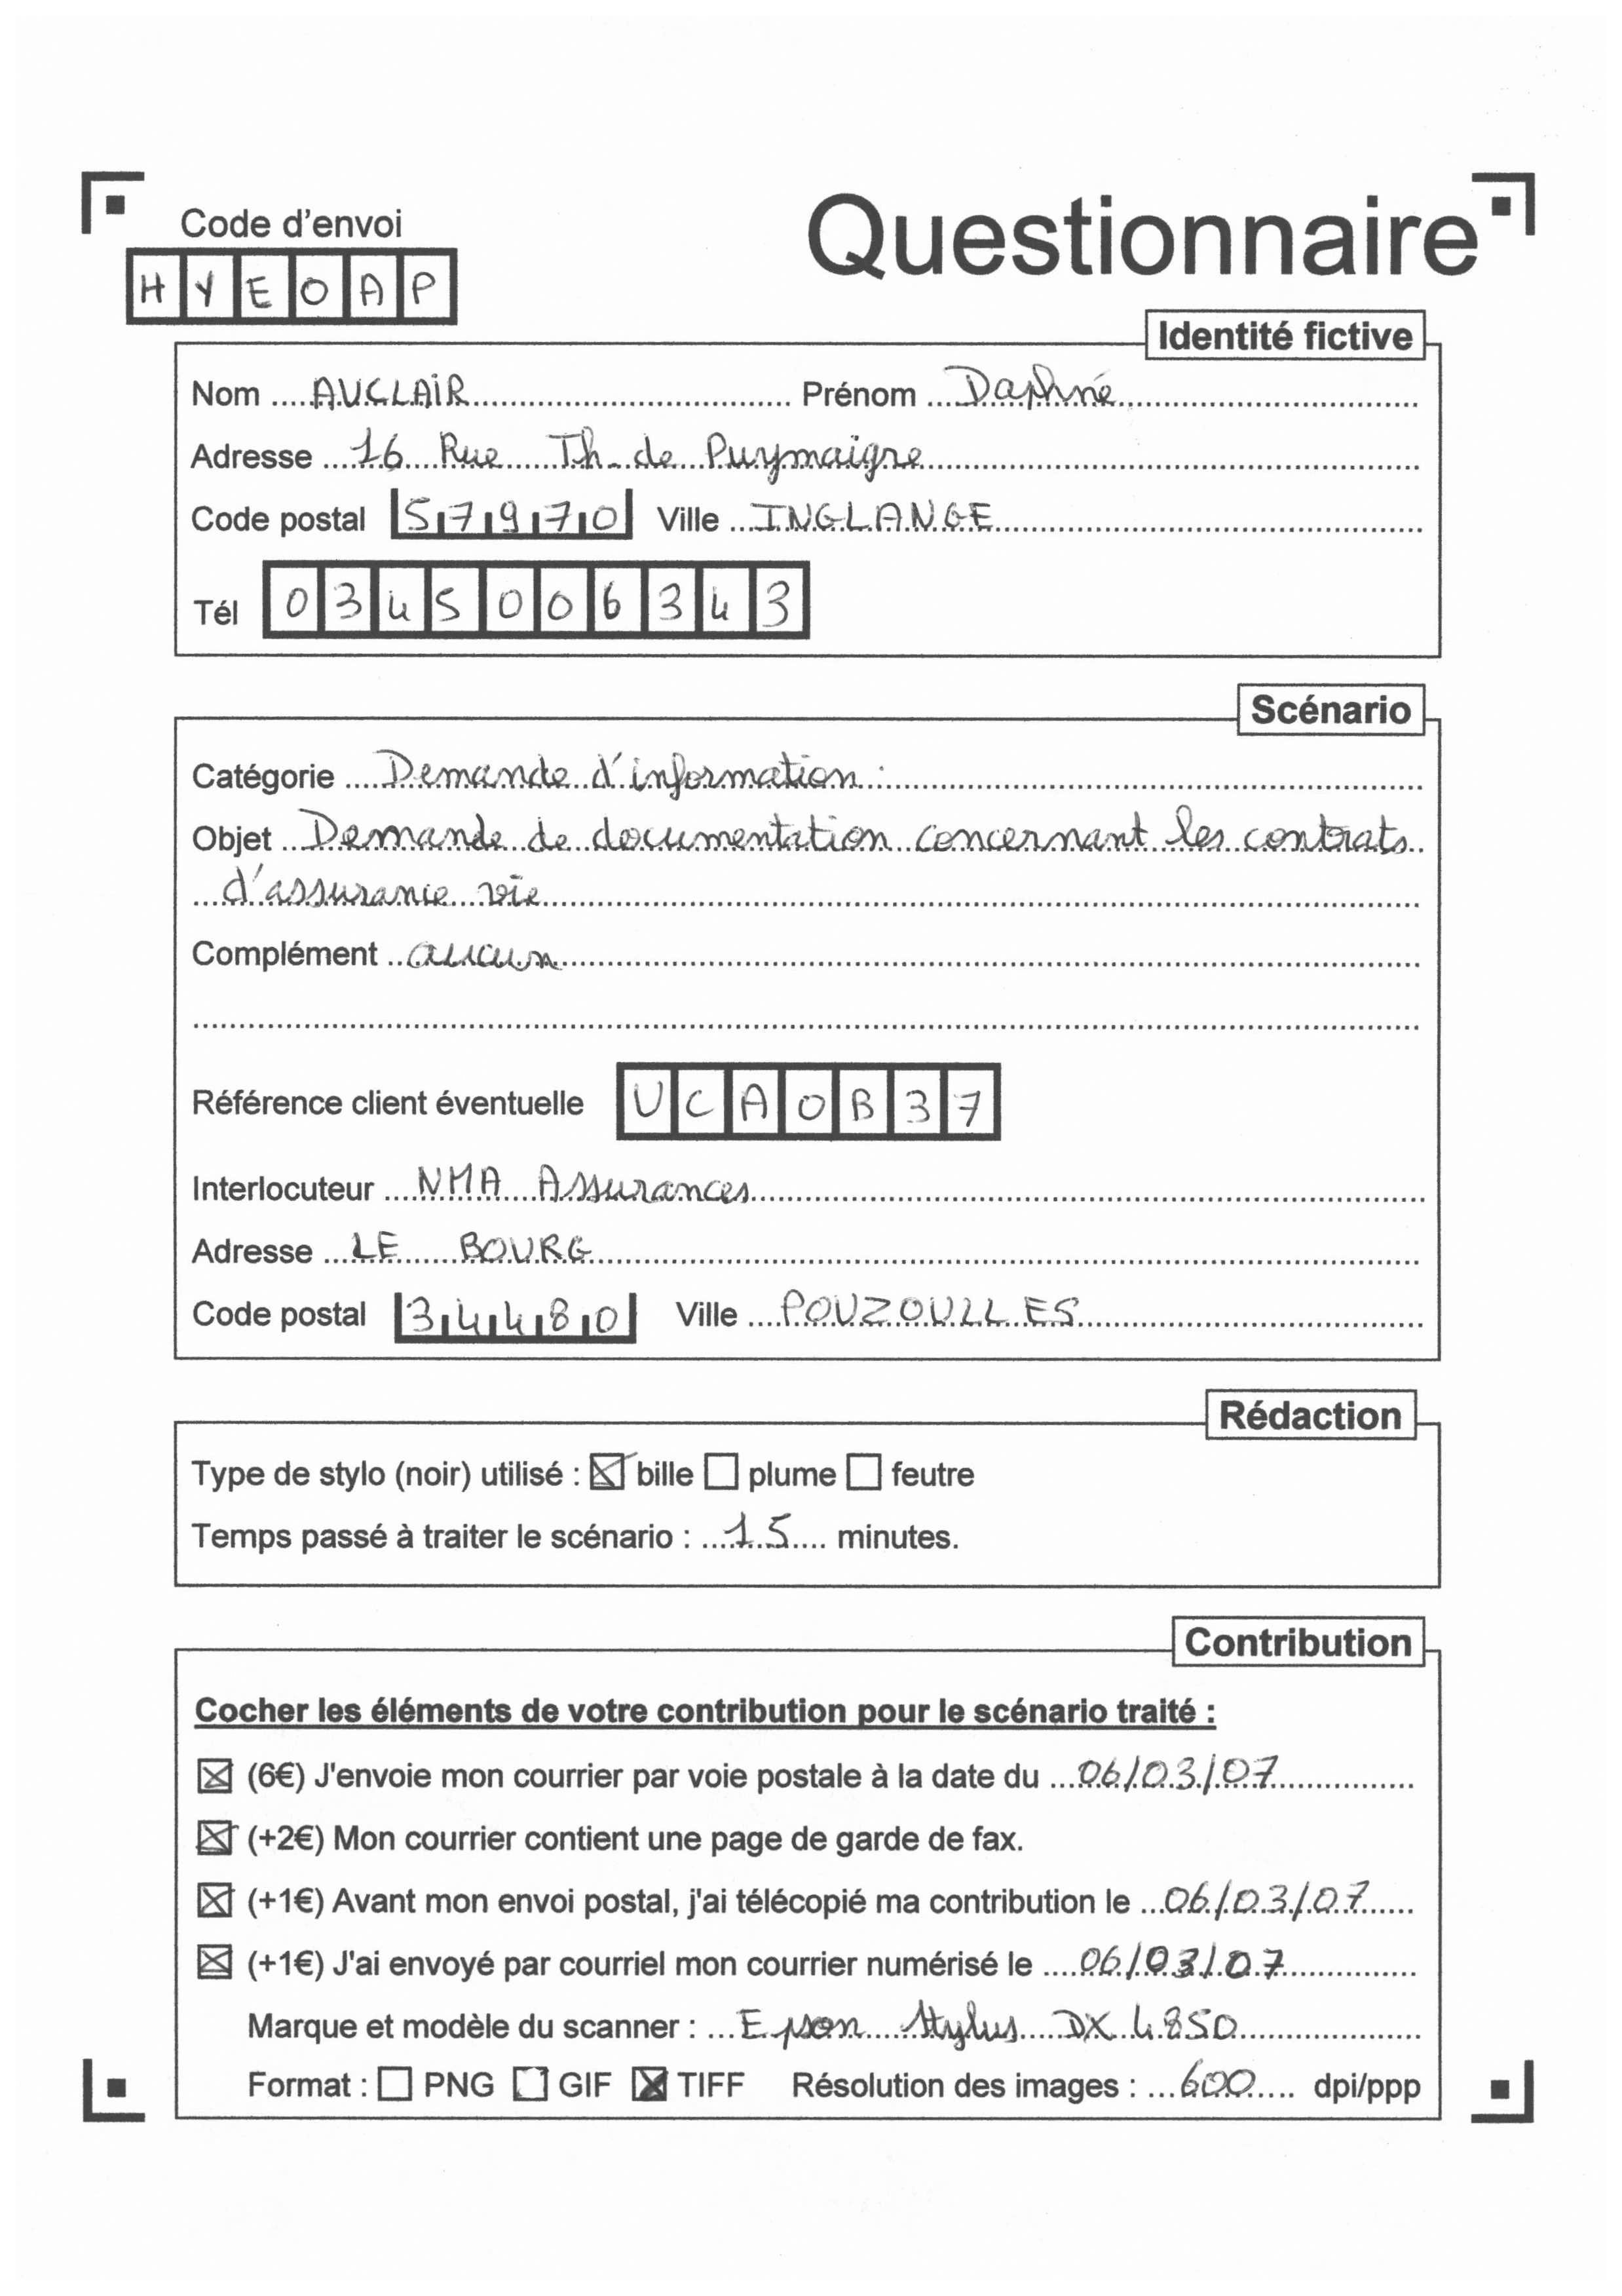 Questionnaire
Code d'envoi
HYEOAP
Identité fictive
Nom ....AUCLAIR.... Prénom ...Daphné...
Adresse ....16 Rue Th. de Puymaigre....
Code postal 57970 Ville ..INGLANGE....
Tél 0345006343
Scénario
Catégorie ....Demande d'information :....
Objet ..Demande de documentation concernant les contrats..
...d'assurance vie....
Complément ..aucun....
Référence client éventuelle UCAOB37
Interlocuteur ....NMA Assurances....
Adresse ...LE BOURG....
Code postal 34480 Ville ....POUZOULLES....
Rédaction
Type de stylo (noir) utilisé : ☒ bille ☐ plume ☐ feutre
Temps passé à traiter le scénario : ...15.... minutes.
Contribution
Cocher les éléments de votre contribution pour le scénario traité :
☒ (6€) J'envoie mon courrier par voie postale à la date du ...06/03/07....
☒ (+2€) Mon courrier contient une page de garde de fax.
☒ (+1€) Avant mon envoi postal, j'ai télécopié ma contribution le ...06/03/07....
☒ (+1€) J'ai envoyé par courriel mon courrier numérisé le ....06/03/07....
Marque et modèle du scanner : ...Epson Stylus DX 4850....
Format : ☐ PNG ☐ GIF ☒ TIFF Résolution des images : ...600.... dpi/ppp